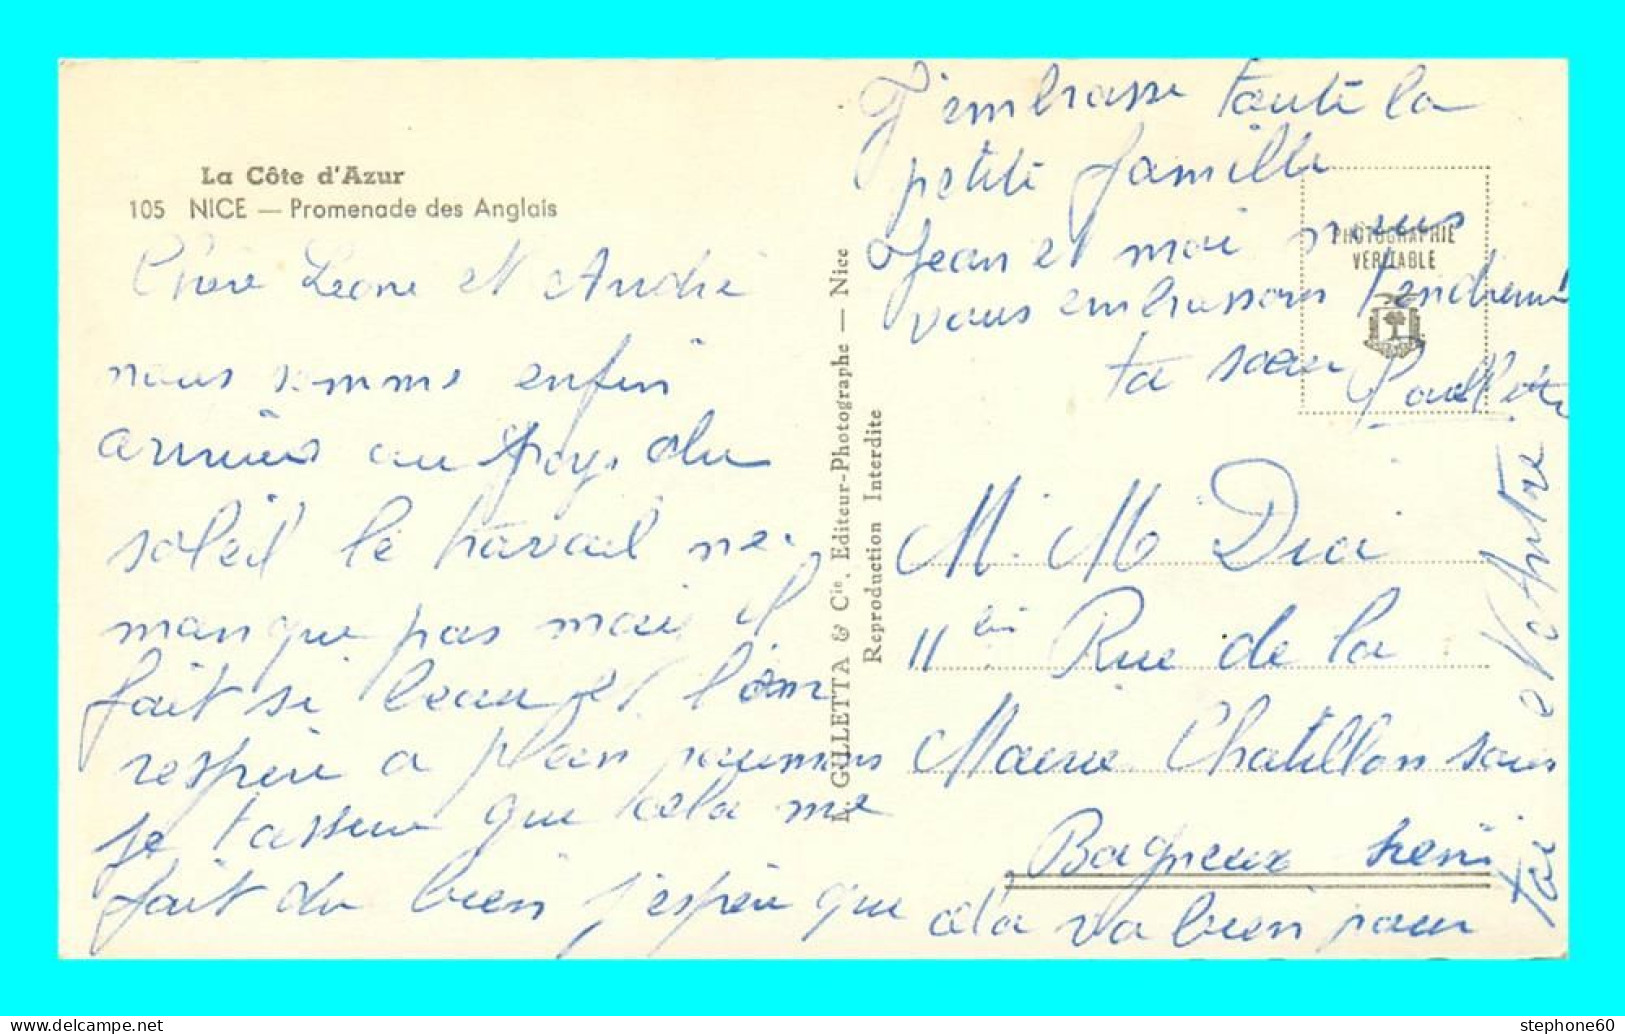 La Côte d'Azur
105 NICE — Promenade des Anglais
Chère Leone et André
nous sommes enfin
arrivés au pays du
soleil le travail ne
manque pas mais il
fait si beau et l'on
respire a plein poumons
je t'assure que cela me
fait du bien j'espère que cela va bien pour
toi et votre
J'embrasse toute la
petite famille
Jean et moi nous
vous embrassons tendrement
ta sœur Paulette
PHOTOGRAPHIE
VÉRITABLE
L. GILLETTA & Cie, Editeur-Photographe — Nice
Reproduction Interdite
M. M
11 bis Rue de la
Chatillon sous
Bagneux Seine
stephone60